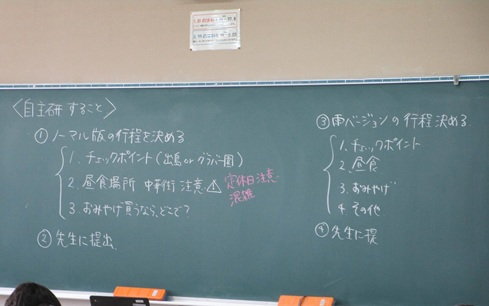 〈自主研 すること〉
① ノーマル版の行程を決める
1. チェックポイント (出島 or グラバー園)
2. 昼食場所 中華街 注意 ⚠ 定休日注意
混雑
3. おみやげ買うなら、どこで?
② 先生に提出
③ 雨バージョンの行程決める
1. チェックポイント
2. 昼食
3. おみやげ
4. その他
④ 先生に提